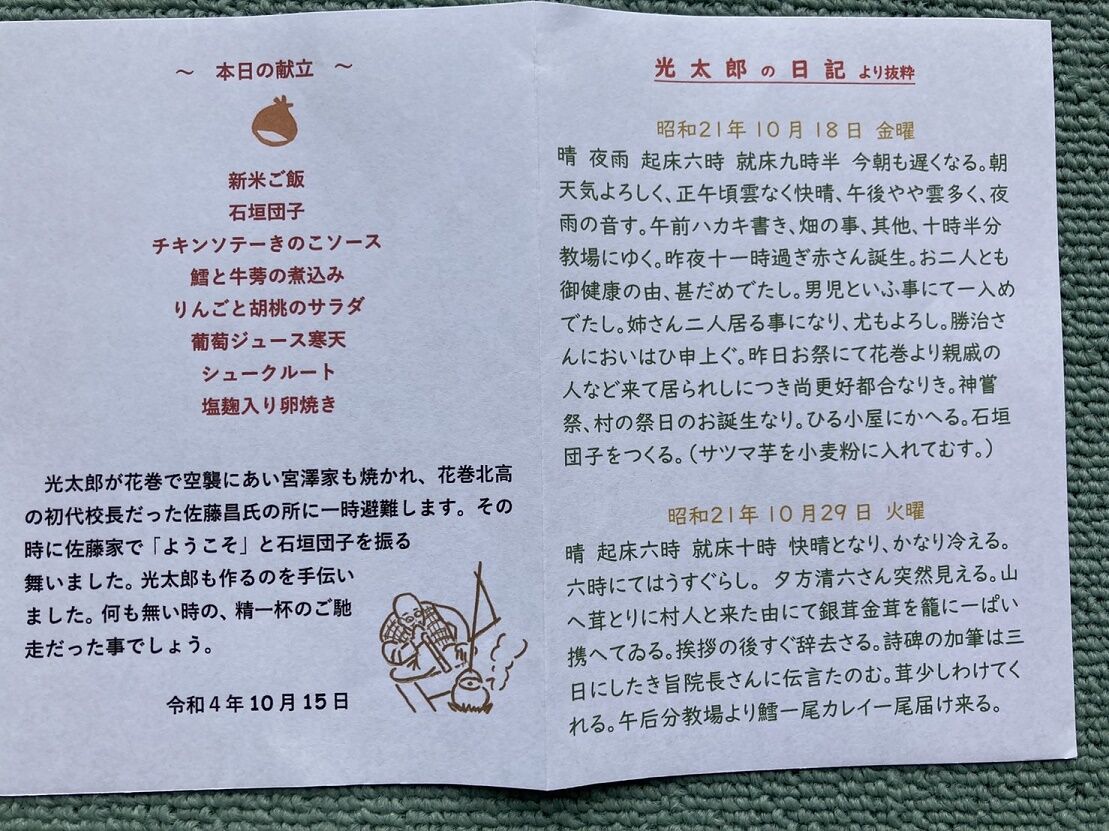 ～ 本日の献立 ～
新米ご飯
石垣団子
チキンソテーきのこソース
鱈と牛蒡の煮込み
りんごと胡桃のサラダ
葡萄ジュース寒天
シュークルート
塩麹入り卵焼き
光太郎が花巻で空襲にあい宮澤家も焼かれ、花巻北高
の初代校長だった佐藤昌氏の所に一時避難します。その
時に佐藤家で「ようこそ」と石垣団子を振る
舞いました。光太郎も作るのを手伝い
ました。何も無い時の、精一杯のご馳
走だった事でしょう。
令和4年10月15日
光太郎の日記より抜粋
昭和21年10月18日 金曜
晴 夜雨 起床六時 就床九時半 今朝も遅くなる。朝
天気よろしく、正午頃雲なく快晴、午後やや雲多く、夜
雨の音す。午前ハカキ書き、畑の事、其他、十時半分
教場にゆく。昨夜十一時過ぎ赤さん誕生。お二人とも
御健康の由、甚だめでたし。男児といふ事にて一入め
でたし。姉さん二人居る事になり、尤もよろし。勝治さ
んにおいはひ申上ぐ。昨日お祭にて花巻より親戚の
人など来て居られしにつき尚更好都合なりき。神嘗
祭、村の祭日のお誕生なり。ひる小屋にかへる。石垣
団子をつくる。（サツマ芋を小麦粉に入れてむす。）
昭和21年10月29日 火曜
晴 起床六時 就床十時 快晴となり、かなり冷える。
六時にてはうすぐらし。 夕方清六さん突然見える。山
へ茸とりに村人と来た由にて銀茸金茸を籠に一ぱい
携へてゐる。挨拶の後すぐ辞去さる。詩碑の加筆は三
日にしたき旨院長さんに伝言たのむ。茸少しわけてく
れる。午后分教場より鱈一尾カレイ一尾届け来る。